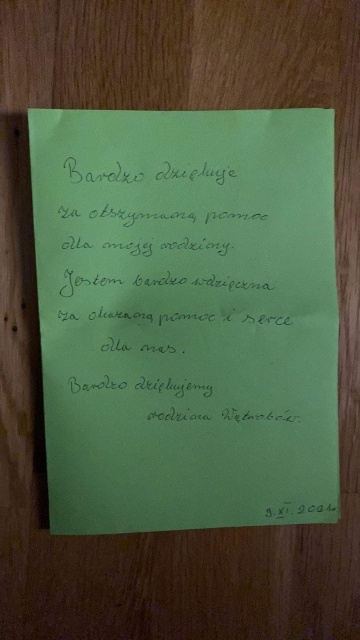 Bardzo dziękuje
za otrzymaną pomoc
dla mojej rodziny.
Jestem bardzo wdzięczna
za okazaną pomoc i serce
dla nas.
Bardzo dziękujemy
rodzina
9.XI.2021r